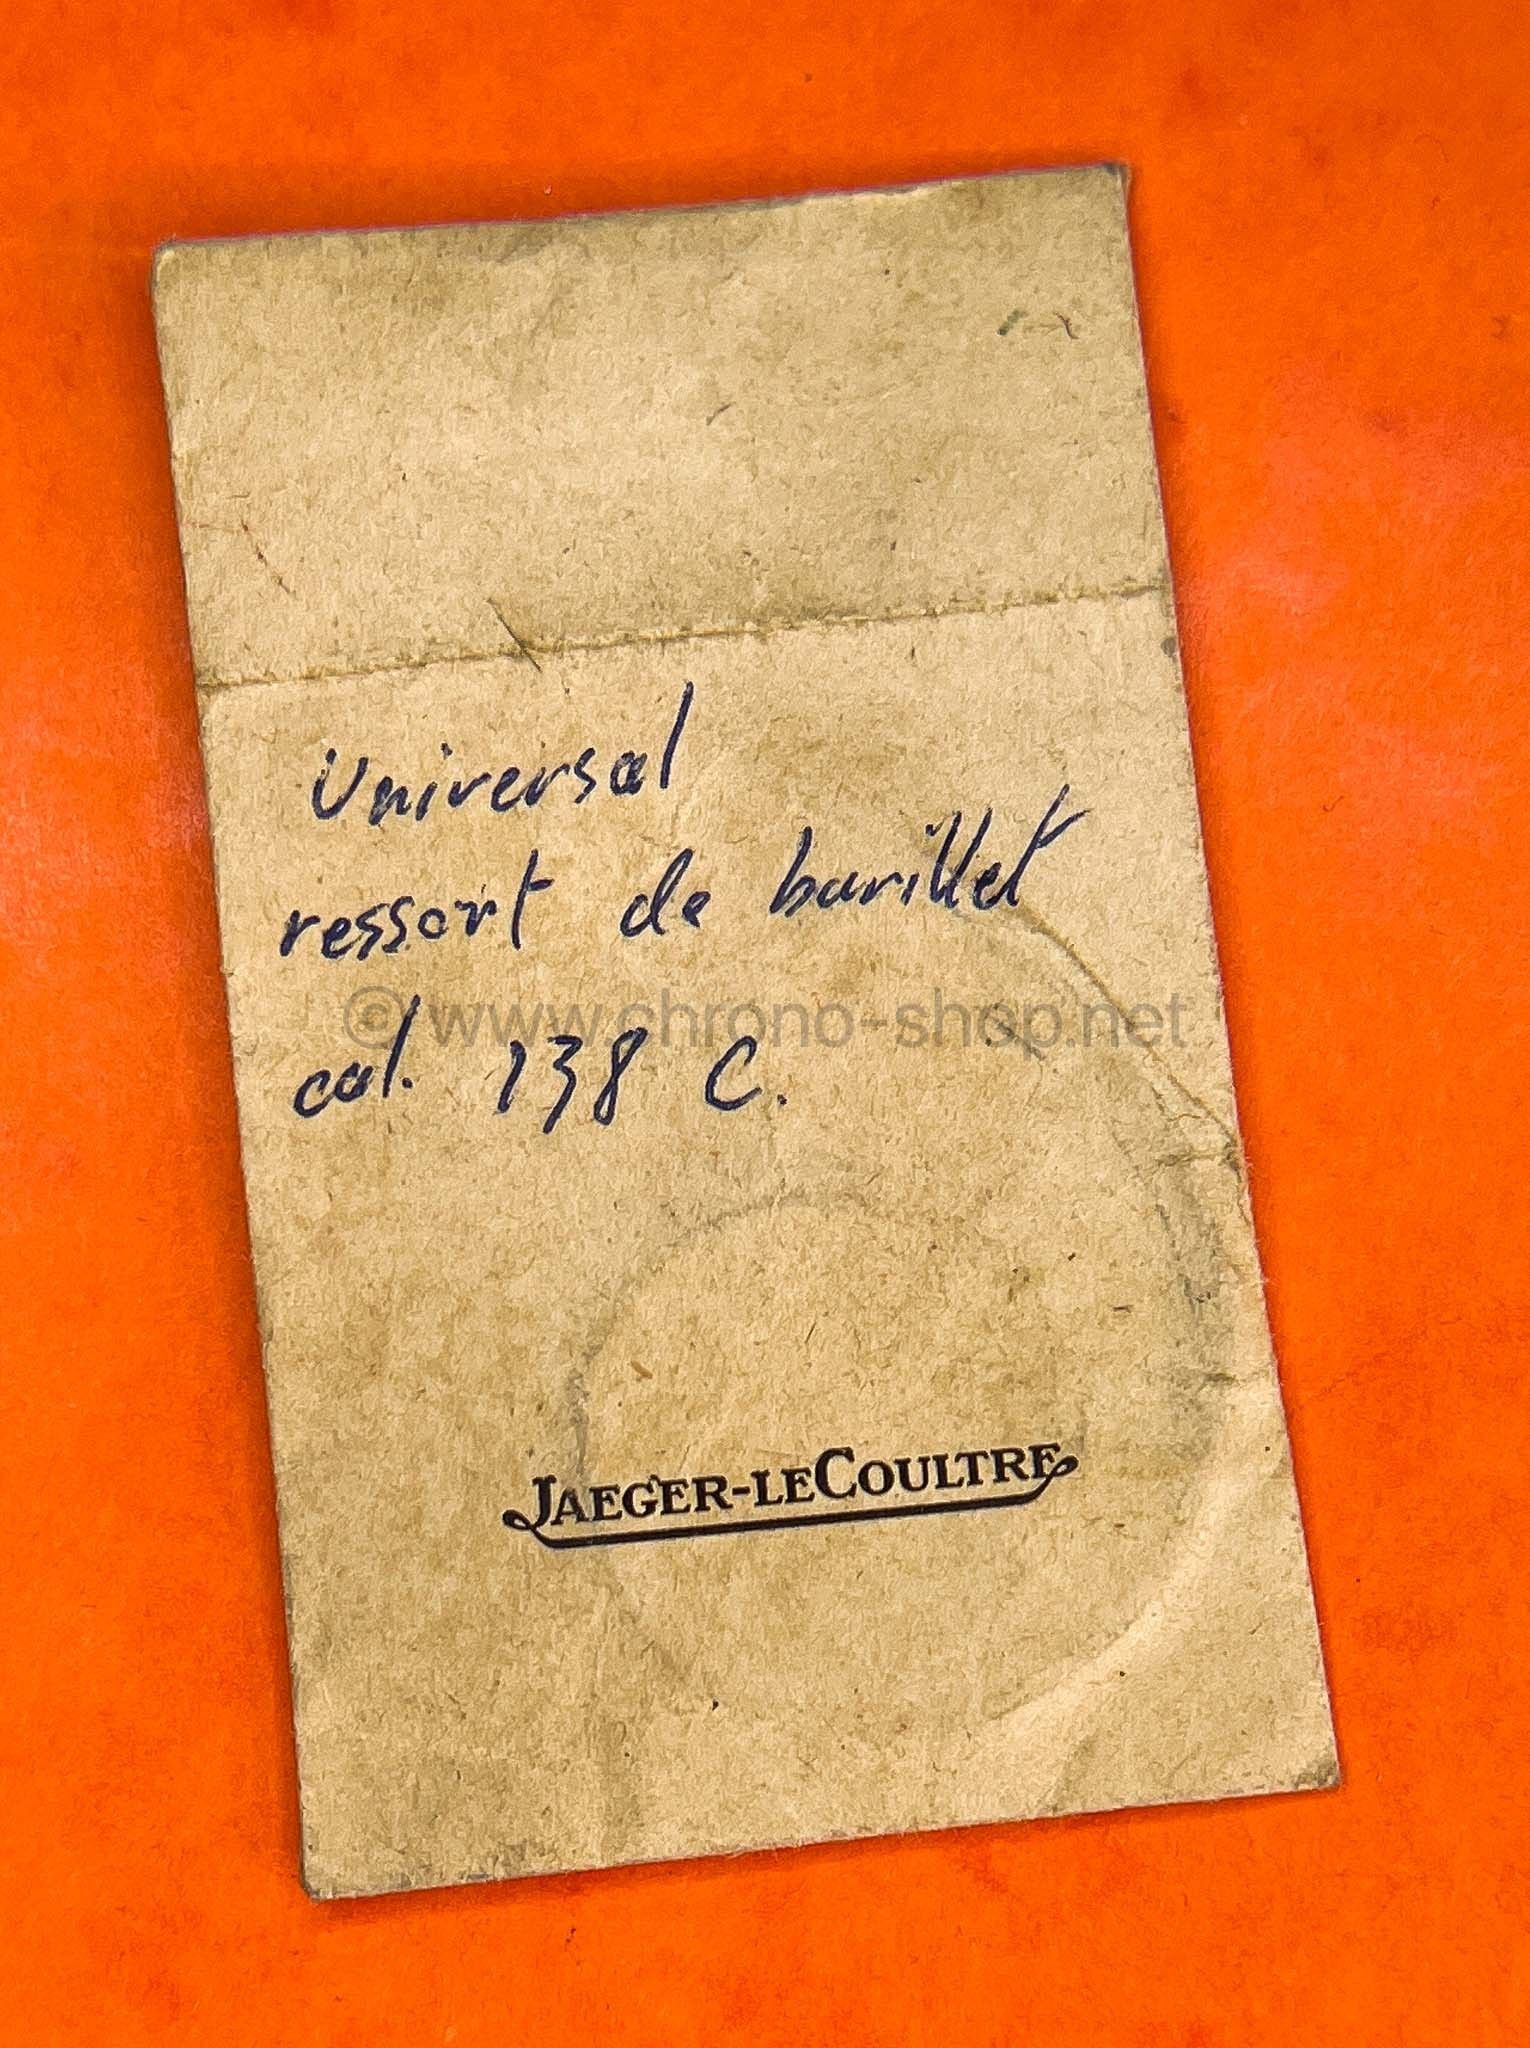 Universal
ressort de barillet
© www.chrono-shop.net
cal. 138 C.
JAEGER-LECOULTRE